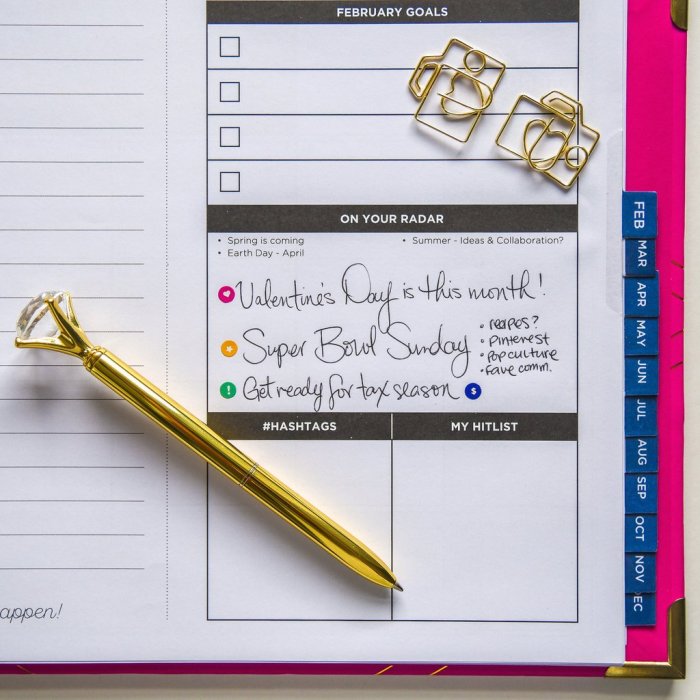 FEBRUARY GOALS
ON YOUR RADAR
• Spring is coming
• Earth Day - April
• Summer - Ideas & Collaboration?
Valentine's Day is this month!
Super Bowl Sunday
• recipes?
• pinterest
• pop culture
• fave comm.
! Get ready for tax season $
#HASHTAGS
MY HITLIST
appen!
FEB
MAR
APR
MAY
JUN
JUL
AUG
SEP
OCT
NOV
EC